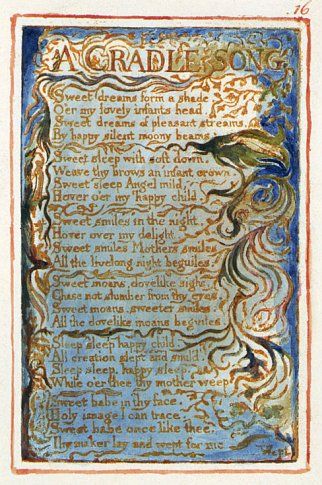 16
A CRADLE SONG
Sweet dreams form a shade
Oer my lovely infants head.
Sweet dreams of pleasant streams,
By happy silent moony beams
Sweet sleep with soft down,
Weave thy brows an infant crown.
Sweet sleep Angel mild,
Hover oer my happy child.
Sweet smiles in the night,
Hover over my delight.
Sweet smiles Mothers smiles
All the livelong night beguiles.
Sweet moans, dovelike sighs,
Chase not slumber from thy eyes,
Sweet moans, sweeter smiles,
All the dovelike moans beguiles.
Sleep sleep happy child.
All creation slept and smil'd.
Sleep sleep, happy sleep,
While oer thee thy mother weep
Sweet babe in thy face,
Holy image I can trace.
Sweet babe once like thee,
Thy maker lay and wept for me